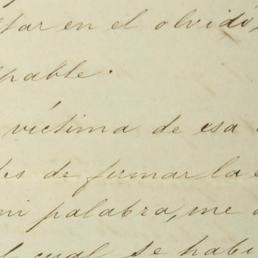 tar en el olvido,
pable.
víctima de esa
es de firmar la
mi palabra, me
cual se habi